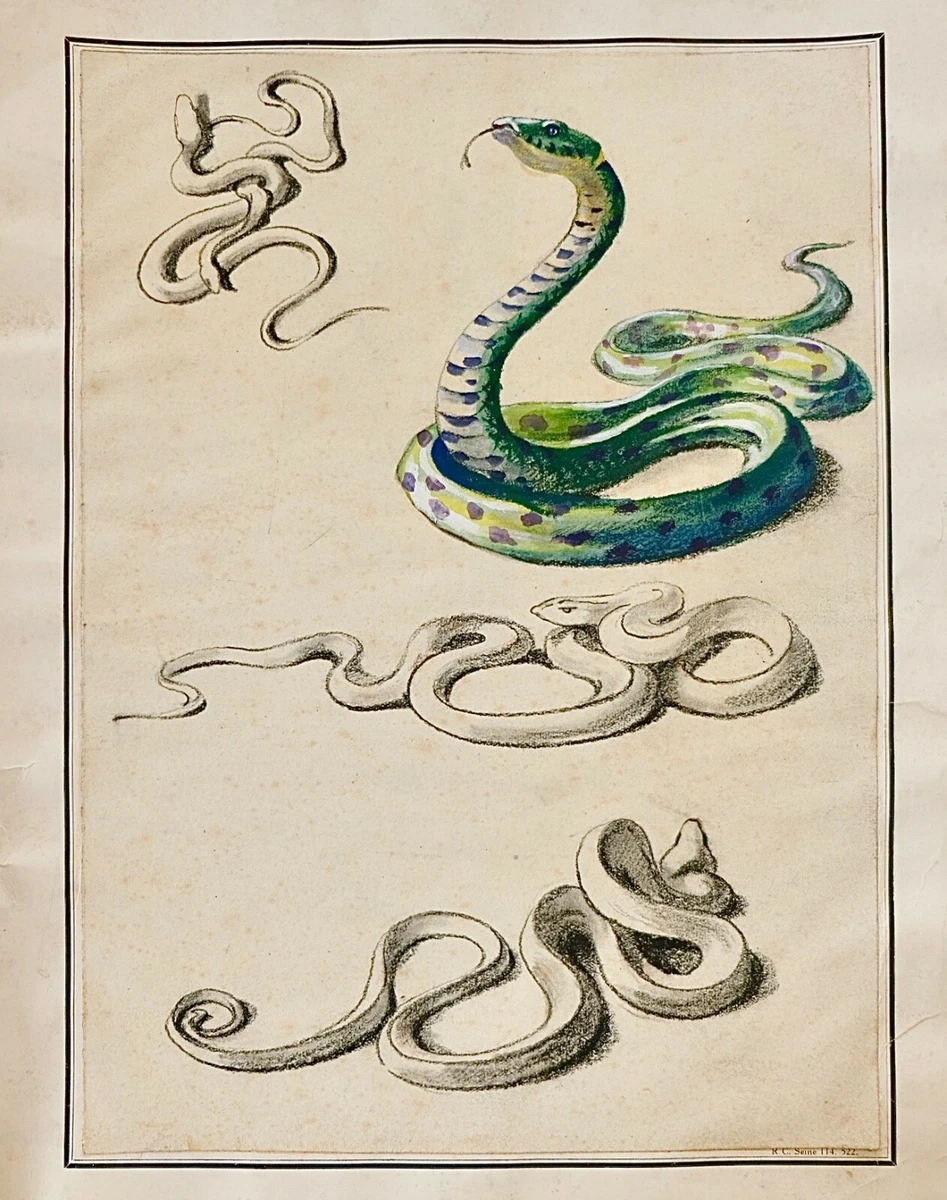 R. C. Seine 114. 522.